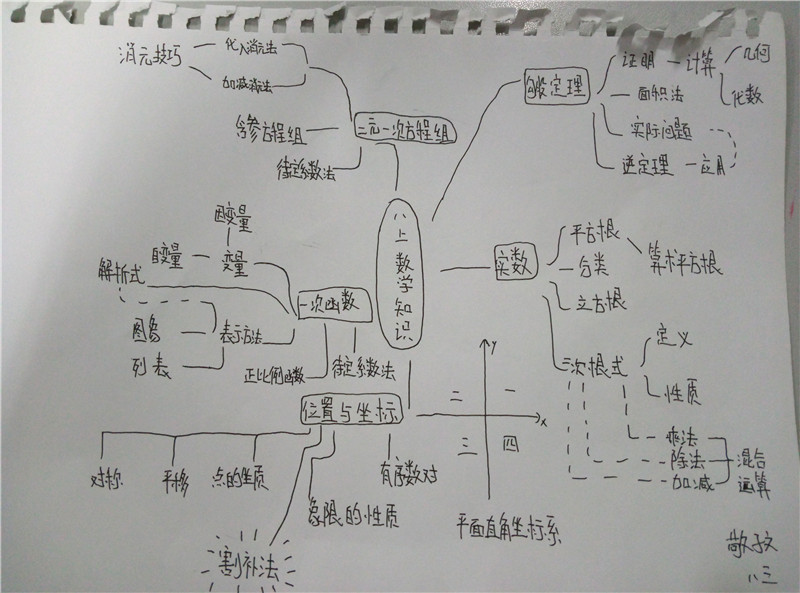 消元技巧
代入消元法
加减消法
含参方程组
二元一次方程组
待定系数法
勾股定理
证明
计算
几何
代数
面积法
实际问题
逆定理
应用
八上数学知识
因变量
自变量
变量
解析式
一次函数
图象
表示方法
列表
正比例函数
待定系数法
实数
平方根
算术平方根
分类
立方根
二次根式
定义
性质
乘法
除法
加减
混合
运算
位置与坐标
对称
平移
点的性质
割补法
象限的性质
有序数对
y
x
一
二
三
四
平面直角坐标系
八三